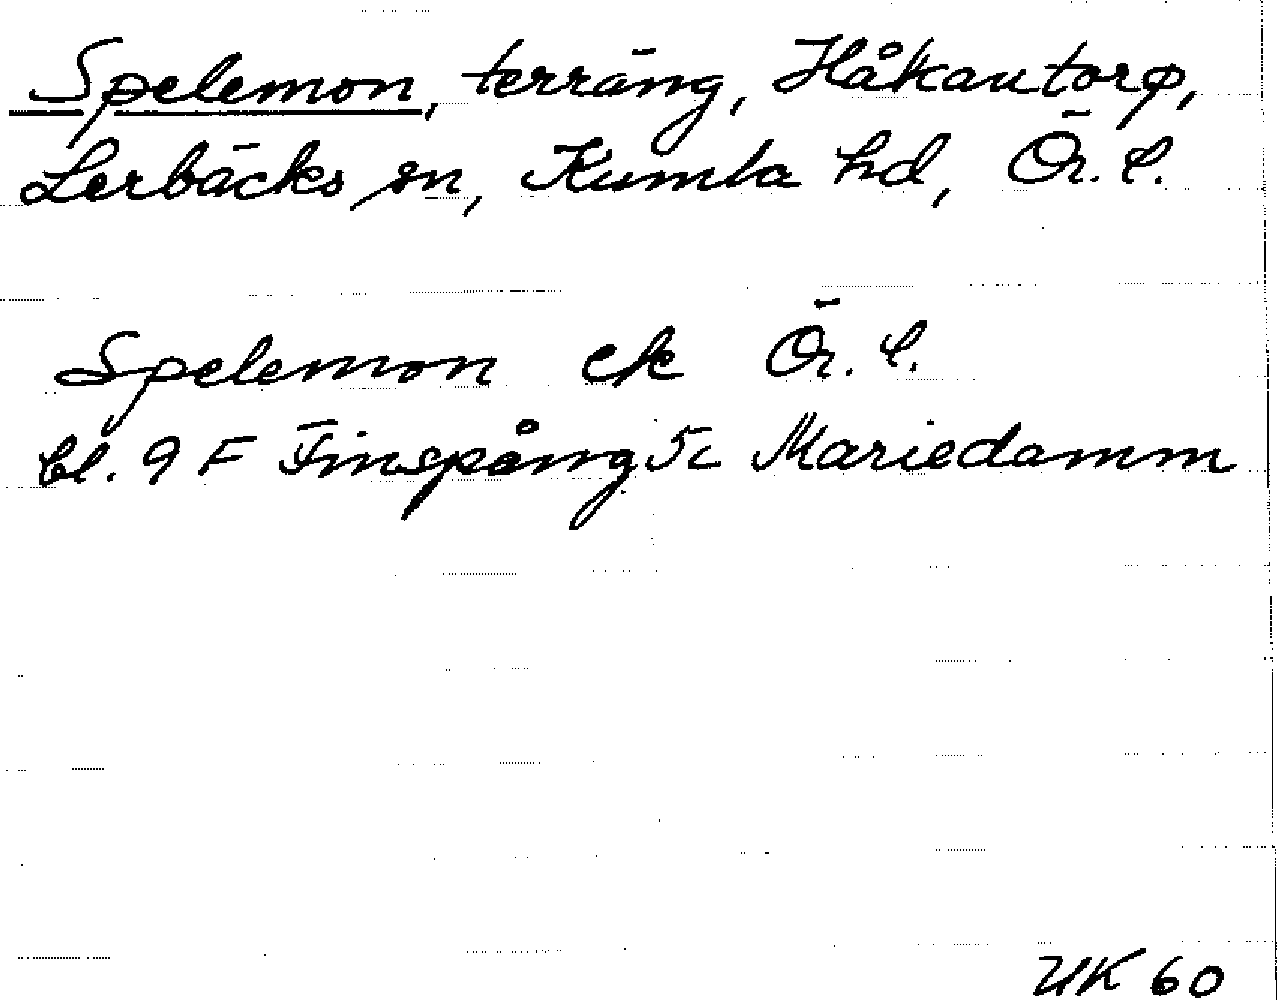 Spelemon, terräng, Håkantorp,
Lerbäcks sn, Kumla hd, Ör. l.
Spelemon ek Ör. l.
bl. 9 F Finspång 5c Mariedamm
UK 60